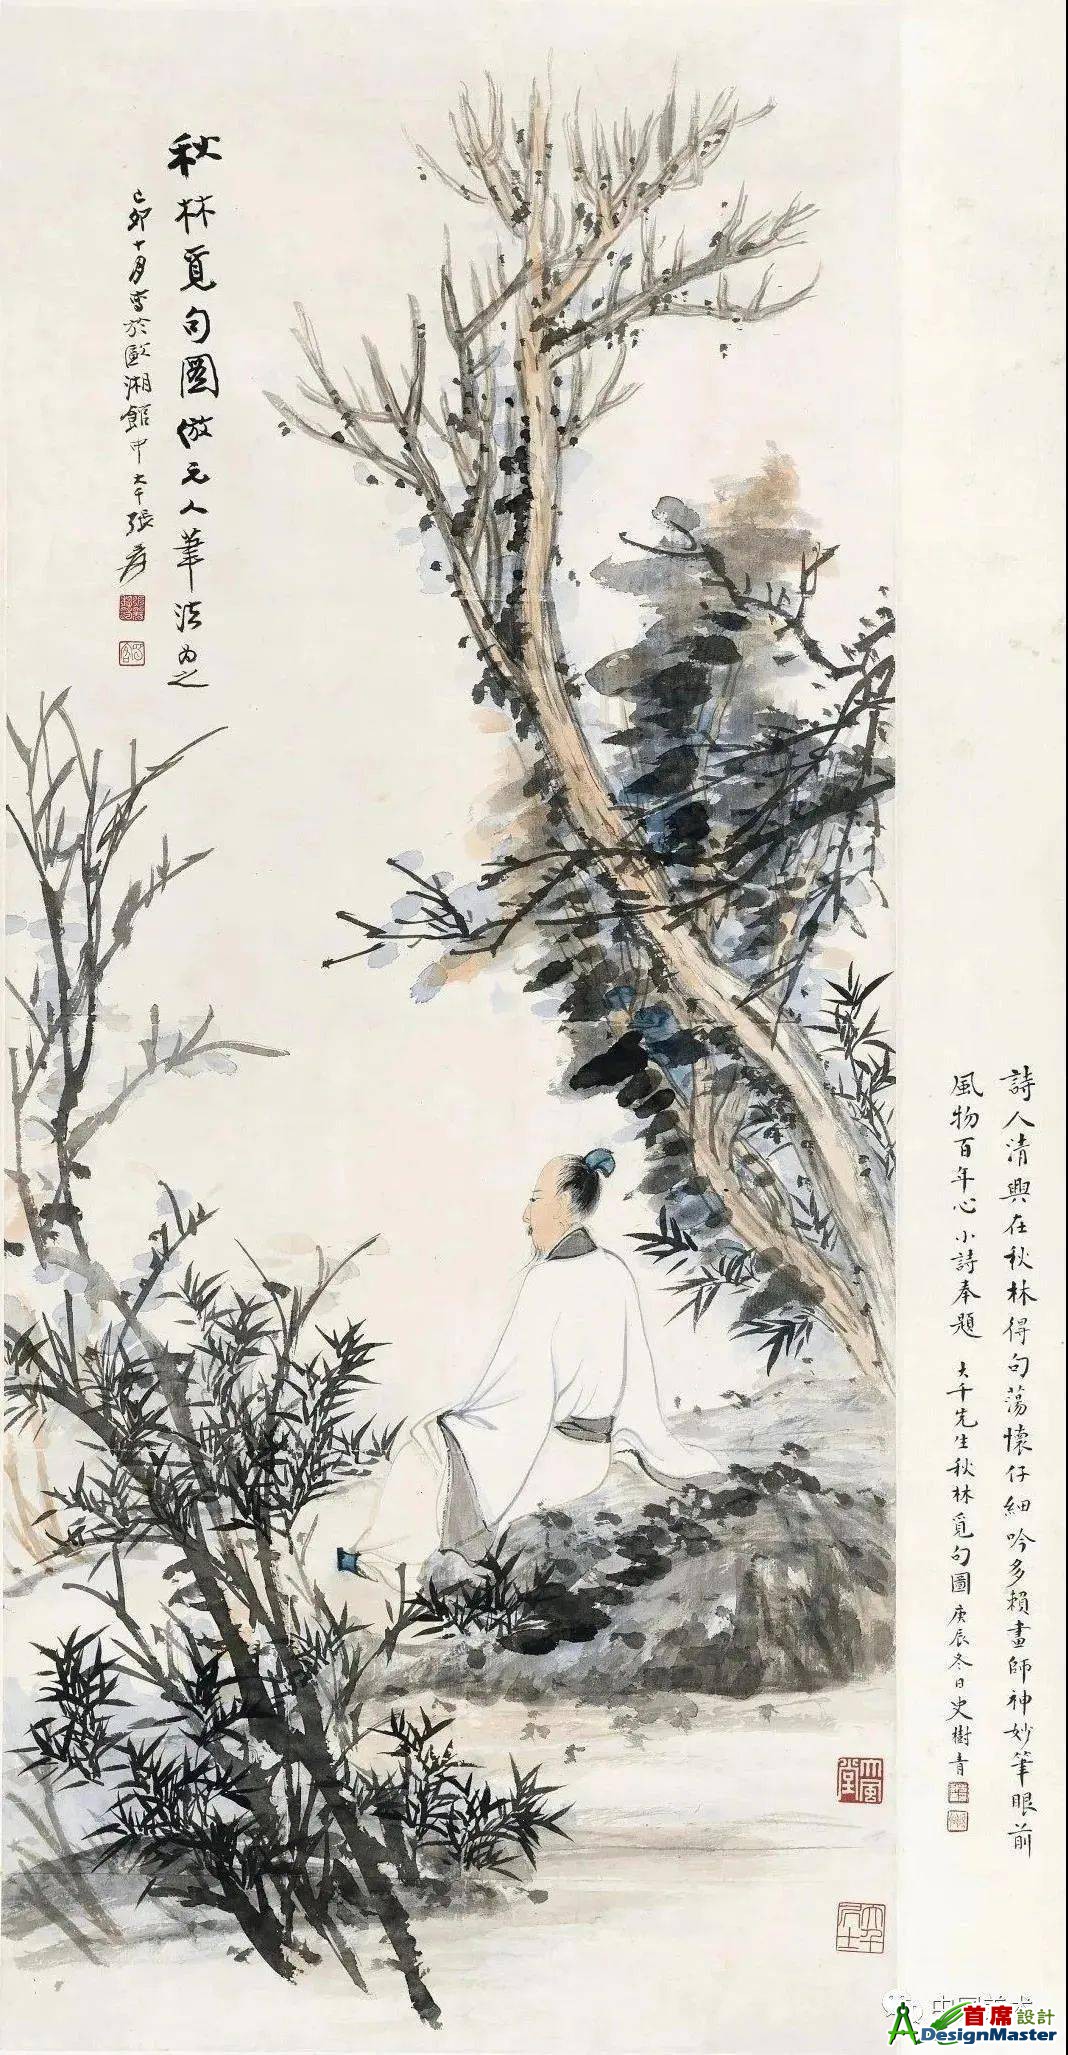 秋林覓句圖倣元人筆法為之
己卯十月寫於歐湘館中大千張爰
詩人清興在秋林得句蕩懷仔細吟多賴畫師神妙筆眼前
風物百年心小詩奉題大千先生秋林覓句圖庚辰冬日史樹青
大風堂
大千居士
中国美术
首席設計
ADesignMaster